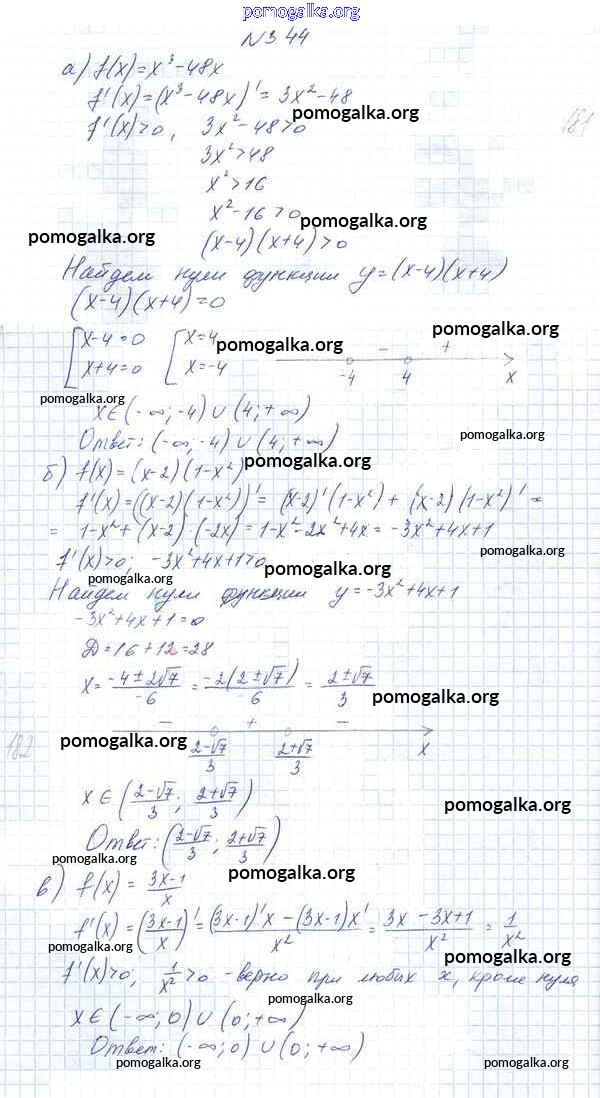 pomogalka.org
N344
а) f(x)=x³-48x
f'(x)=(x³-48x)'=3x²-48
pomogalka.org
f'(x)>0, 3x²-48>0
181
3x²>48
x²>16
x²-16>0
pomogalka.org
pomogalka.org
(x-4)(x+4)>0
Найдем нули функции y=(x-4)(x+4)
(x-4)(x+4)=0
pomogalka.org
[x-4=0 [x=4
pomogalka.org
- +
x+4=0 x=-4
-4 4 x
pomogalka.org
x∈(-∞;-4)∪(4;+∞)
pomogalka.org
Ответ: (-∞,-4)∪(4;+∞)
pomogalka.org
б) f(x)=(x-2)(1-x²)
f'(x)=((x-2)(1-x²))'=(x-2)'(1-x²)+(x-2)(1-x²)'=
= 1-x²+(x-2)·(-2x)=1-x²-2x²+4x=-3x²+4x+1
pomogalka.org
f'(x)>0; -3x²+4x+1>0
pomogalka.org
pomogalka.org
Найдем нули функции y=-3x²+4x+1
-3x²+4x+1=0
D=16+12=28
x=(-4±2√7)/-6=-2(2±√7)/-6=(2±√7)/3
pomogalka.org
- + -
182
pomogalka.org
(2-√7)/3 (2+√7)/3 x
x∈((2-√7)/3; (2+√7)/3)
pomogalka.org
Ответ: ((2-√7)/3; (2+√7)/3)
pomogalka.org
pomogalka.org
в) f(x)=(3x-1)/x
f'(x)=((3x-1)/x)'=((3x-1)'x-(3x-1)x')/x²=(3x-3x+1)/x²=1/x²
pomogalka.org
pomogalka.org
f'(x)>0, 1/x²>0 - верно при любых x, кроме нуля
pomogalka.org
x∈(-∞;0)∪(0;+∞)
Ответ: (-∞;0)∪(0;+∞)
pomogalka.org
pomogalka.org